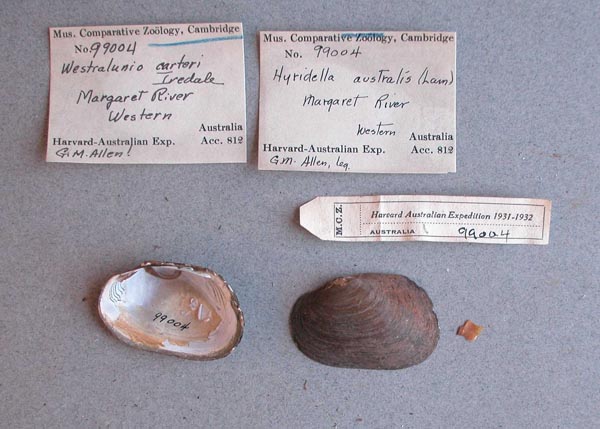 Mus. Comparative Zoölogy, Cambridge
No. 99004
Westralunio carteri
Iredale
Margaret River
Western
Australia
Harvard-Australian Exp. Acc. 812
G.M. Allen!
Mus. Comparative Zoölogy, Cambridge
No. 99004
Hyridella australis (Lam)
Margaret River
Western Australia
Harvard-Australian Exp. Acc. 812
G.M. Allen, leg.
M.C.Z.
Harvard Australian Expedition 1931-1932
AUSTRALIA 99004
99004